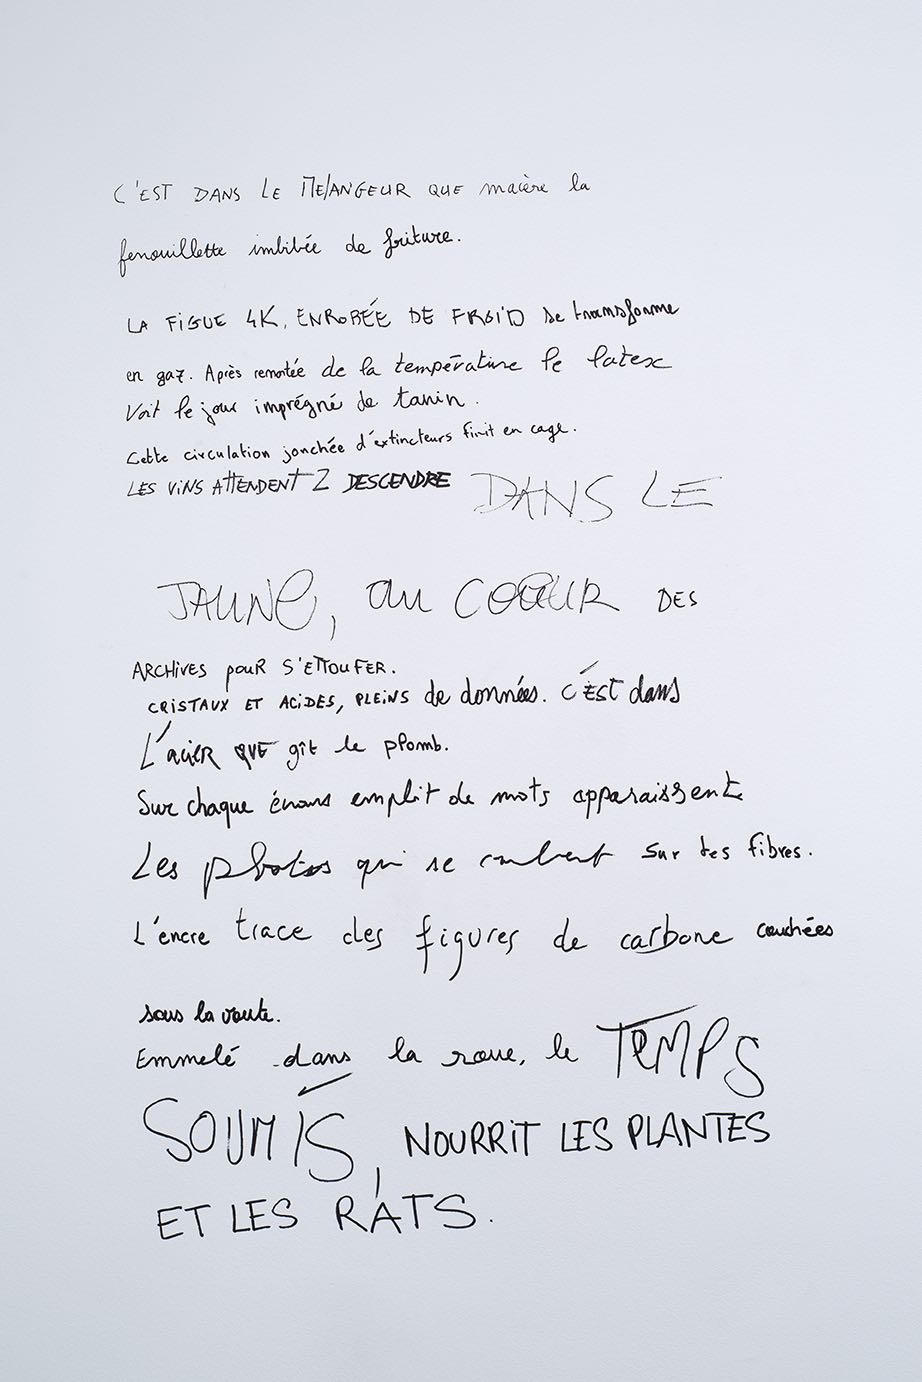 C'EST DANS LE MELANGEUR QUE macère la
fenouillette imbibée de friture.
LA FIGUE 4K, ENROBÉE DE FROID se transforme
en gaz. Après remontée de la température le latex
Voit le jour imprégné de tanin.
Cette circulation jonchée d'extincteurs finit en cage.
LES VINS ATTENDENT 2 DESCENDRE DANS LE
JAUNE, au COEUR DES
ARCHIVES pouR S'ETTOUFER.
CRISTAUX ET ACIDES, PLEINS de données. C'EST dans
L'acier QUE gît le plomb.
Sur chaque emplit de mots apparaissent
Les photos qui se sur des fibres.
L'encre trace des figures de carbone couchées
sous la voute.
Emmelé dans la roue, le TEMPS
SOUMIS, NOURRIT LES PLANTES
ET LES RATS.